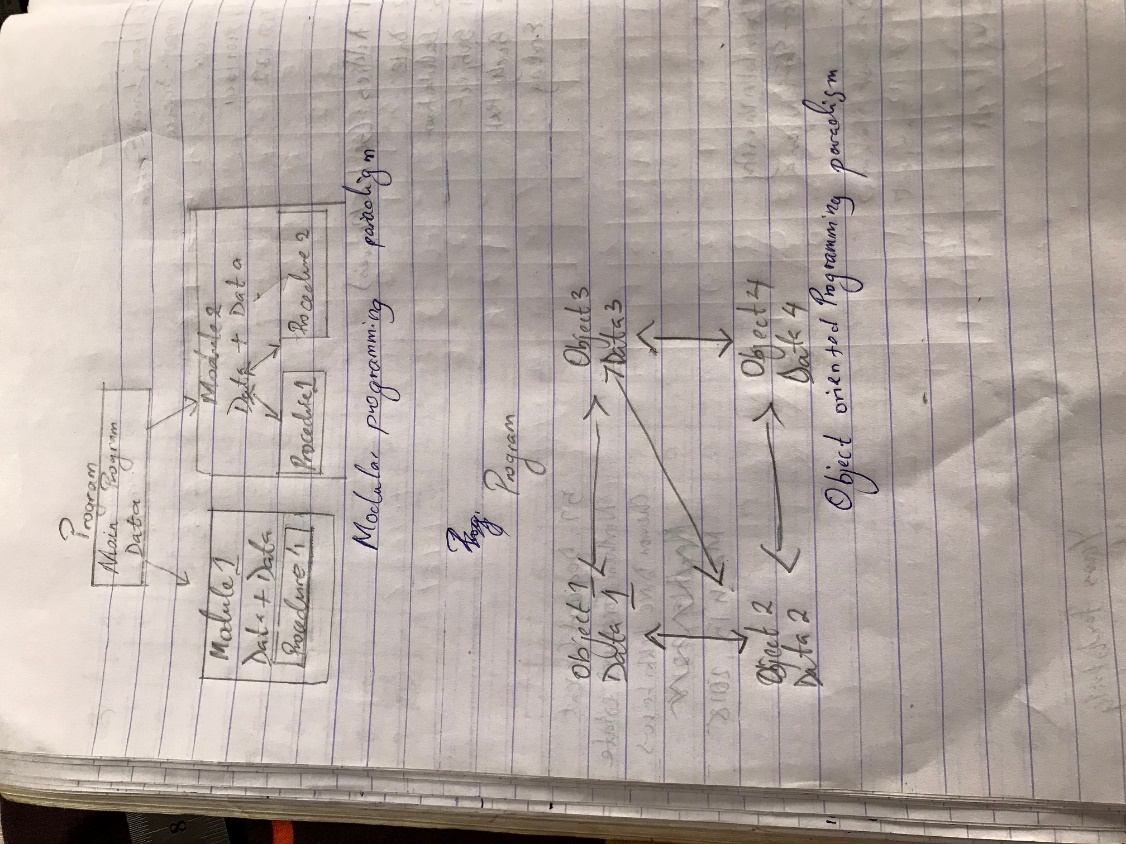 Program
Main Program
Data
Module 1
Data + Data
Procedure 1
Module 2
Data + Data
Procedure 1
Procedure 2
Modular programming paradigm
Prog.
Program
Object 1
Data 1
Object 3
Data 3
Object 2
Data 2
Object 4
Data 4
Object oriented Programming paradigm